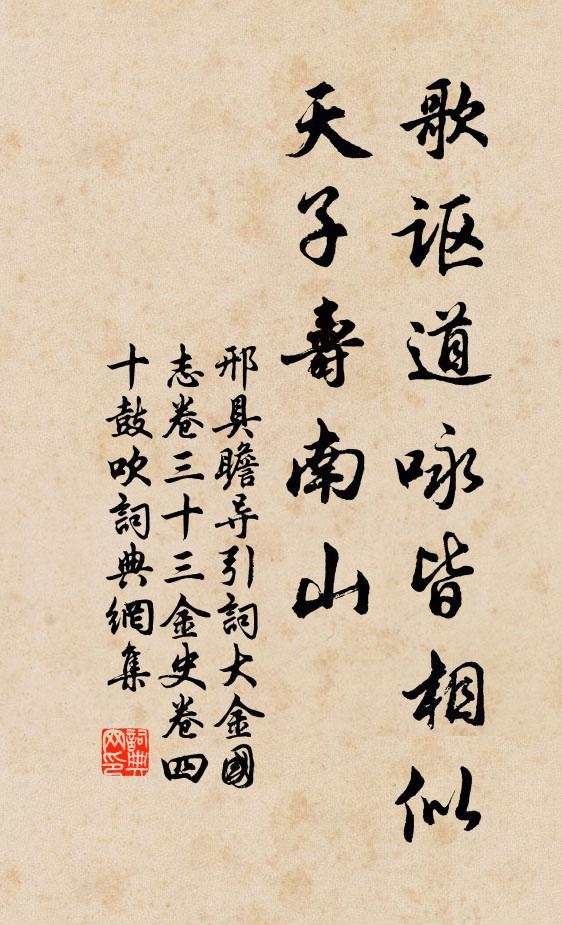 歌讴道咏皆相似
天子壽南山
邢具瞻导引詞大金國
志卷三十三金史卷四
十鼓吹詞典網集
詞典網印